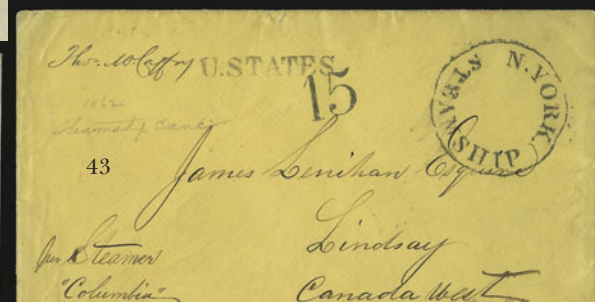 Thos. McCaffry
U.STATES
15
N.YORK
STEAMSHIP
1862
Steamship Cancl
43
James Lenihan Esquire
Lindsay
per Steamer
"Columbia"
Canada West